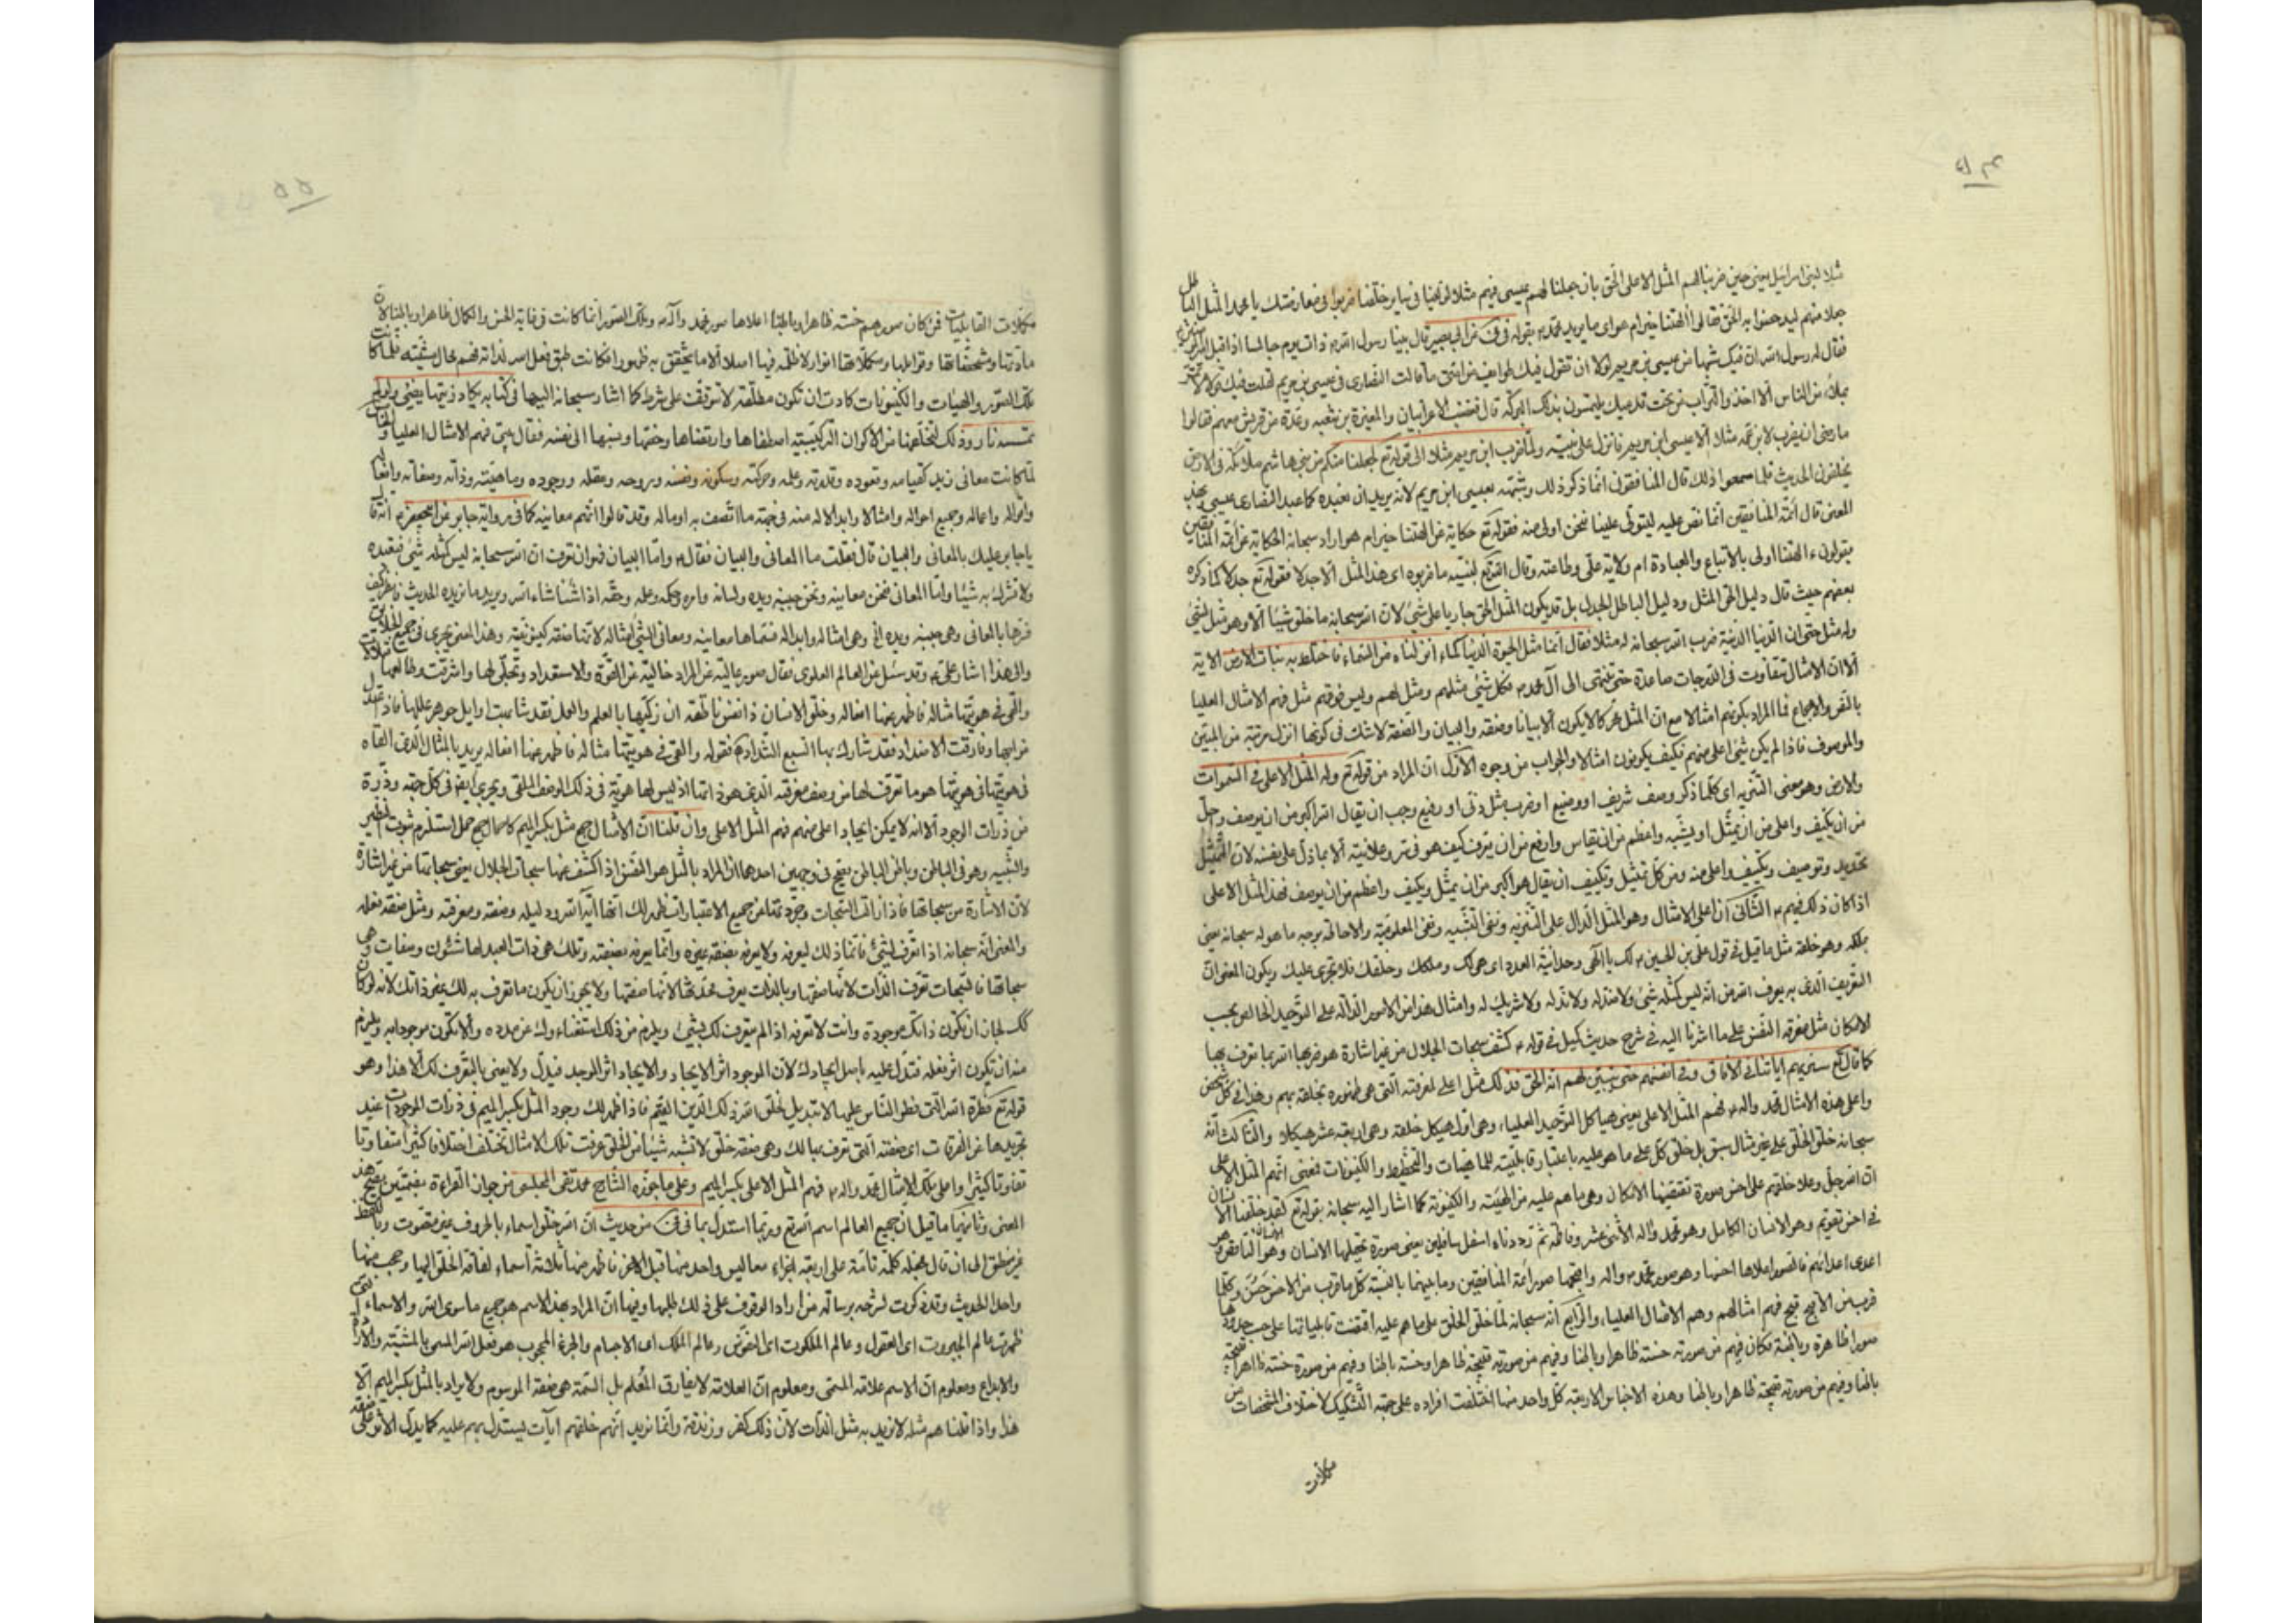 ۵۴
مثلا لبنى اسرائيل يعنى حين ضربنا لهم المثل الاعلى الحق بان جعلنا لهم عيسى فيهم مثلا يا محمد المثل الباطل
جدلا منهم ليدحضوا به الحق فقالوا أآلهتنا خير ام هو اى ما يريد محمد بقوله فى عن ابى بصير قال بينا رسول الله ذات يوم جالسا اذ اقبل امير المؤمنين
فقال له رسول الله ان فيك شبها من عيسى بن مريم لولا ان تقول فيك طوايف من امتى ما قالت النصارى فى عيسى بن مريم لقلت فيك قولا لا تمر
بملاء من الناس الا اخذوا التراب من تحت قدميك يلتمسون بذلك البركة قال فغضب الاعرابيان والمغيرة بن شعبه وعدة من قريش معهم فقالوا
ما رضى ان يضرب لابن عمه مثلا الا عيسى ابن مريم فانزل على نبيه ولما ضرب ابن مريم مثلا الى قوله تع لجعلنا منكم من بنى هاشم ملائكة فى الارض
يخلفون الحديث فلما سمعوا ذلك قال المنافقون انما ذكر ذلك وشبهه بعيسى ابن مريم لانه يريد ان نعبده كما عبد النصارى عيسى
المعنى قال ائمة المنافقين انما نص عليه ليتولى علينا فنحن اولى منه فقوله تع حكاية عن الهتنا خير ام هو اراد سبحانه الحكاية عن ائمة المنافقين
يقولون ءالهتنا اولى بالاتباع والعبادة ام ولاية على وطاعته وقال الله تع لنبيه ما ضربوه اى هذا المثل الا جدلا فقوله تع جدلا كما ذكره
بعضهم حيث قال دليل الحق المثل ودليل الباطل الجدل بل قد يكون المثل الحق جاريا على شئ لان الله سبحانه ما خلق شيئا الا وهو مثل لشئ
وله مثل حتى ان الدنيا الدنية ضرب الله سبحانه له مثلا فقال انما مثل الحيوة الدنيا كماء انزلناه من السماء فاختلط به نبات الارض الاية
الا ان الامثال تتفاوت فى الدرجات صاعدة حتى تنتهى الى آل محمد فكل شئ مثلهم ومثل لهم وليس فوقهم مثل فهم الامثال العليا
بالنص والاجماع فما المراد بكونهم امثالا مع ان المثل محركا لا يكون الا بيانا وصفة والبيان والصفة لا شك فى كونها انزل مرتبة من المبين
والموصوف فاذا لم يكن شئ اعلى منهم فكيف يكونون امثالا والجواب من وجوه الاول ان المراد من قوله تع وله المثل الاعلى فى السموات
والارض وهو معنى التنزيه اى كلما ذكر وصف شريف او وضيع او ضرب مثل دنى او رفيع وجب ان يقال الله اكبر من ان يوصف واجل
من ان يكيف واعلى من ان يمثل او يشبه واعظم من ان يقاس وارفع من ان يعرف كيف هو فى سر وعلانية الا بما دل على نفسه لان التمثيل
تحديد وتوصيف وتكييف واعلى منه ومن كل تمثيل وتكييف ان يقال هو اكبر من ان يمثل ويكيف واعظم من ان يوصف فهذا المثل الاعلى
اذا كان ذلك فيهم الثانى ان اعلى الامثال وهو المثل الدال على التنزيه ونفى التشبيه ونفى المعلومية والاحاطة بوجه ما هو له سبحانه يعنى
ملكه وهو خلقه مثل ما قيل فى قول على بن الحسين لك يا الهى وحدانية العدد اى هى لك وملكك وخلقك فلا تجرى عليك ويكون المعنى ان
التعريف الذى به يعرف الله من انه ليس كمثله شئ ولا ضد له ولا ند له ولا شريك له وامثال هذا من الامور الدالة على التوحيد الخالص بحسب
الامكان مثل معرفة النفس على ما اشرنا اليه فى شرح حديث كميل فى قوله كشف سبحات الجلال من غير اشارة
كما قال تع سنريهم اياتنا فى الافاق وفى انفسهم حتى يتبين لهم انه الحق فذلك مثل اعلى لمعرفته التى هى ظهوره بخلقه بهم وهذا فى كل شخص
واعلى هذه الامثال محمد وآله فهم المثل الاعلى يعنى هياكل التوحيد العليا، وهى اول هيكل خلقه وهى اربعة عشر هيكلا والثالث انه
سبحانه خلق الخلق على غير مثال سبق بل خلق كل على ما هو عليه باعتبار قابليته للماهيات والتخطيط والكينونات فمعنى انهم المثل الاعلى
ان الله جل وعلا خلقهم على احسن صورة تقتضيها الامكان وهى ما هم عليه من الهيئة والكينونة كما اشار اليه سبحانه بقوله تع لقد خلقنا الانسان
فى احسن تقويم وهو الانسان الكامل وهو محمد وآله الاثنى عشر وفاطمة ثم رددناه اسفل سافلين يعنى صورة تحتملها الانسان وهو الناقص
اعدى اعدائهم فالصور اعلاها احسنها وهو صور محمد وآله واقبحها صور ائمة المنافقين وما بينهما بالنسبة كل ما قرب من الاحسن حسن وكلما
قرب من الاقبح قبح فهم امثالهم وهم الامثال العليا، والرابع انه سبحانه لما خلق الخلق على ما هم عليه اقتضت قابلياتها على حسب حدودها
صورا ظاهرة وباطنة فكان فيهم من صورته حسنة ظاهرا وباطنا وفيهم من صورته قبيحة ظاهرا وحسنة باطنا وفيهم من صورة حسنة ظاهرا قبيحة
باطنا وفيهم من صورته قبيحة ظاهرا وباطنا وهذه الاجناس الاربعة كل واحد منها اختلفت افراده على جهة التشكيك لاختلاف المشخصات من
مكملات
۵۵
مكملات القابليات فمن كان صورهم حسنة ظاهرا وباطنا اعلاها صور محمد وآله وتلك الصور انما كانت فى غاية الحسن والكمال ظاهرا وباطنا لان
مادتها ومشخصاتها وقوابلها ومكملاتها انوار لا ظلمة فيها اصلا الا ما يتحقق به ظهورا فكانت طبق فعل الله لذاته فهم محال مشيته فلما كانت
تلك الصور والهيئات والكينونات كادت ان تكون مطلقة لا تتوقف على شرط كما اشار سبحانه اليها فى كتابه يكاد زيتها يضئ ولو لم
تمسسه نار وذلك لتخلصها من الاكوان التركيبية اصطفاها وارتضاها واختصها ونسبها الى نفسه فقال نبيه فهم الامثال العليا والقائل
لما كانت معانى زيد كقيامه وقعوده وقدرته وعلمه وحركته وسكونه ونفسه وروحه وعقله ووجوده وماهيته وذاته وصفاته وافعاله
واقواله واعماله وجميع احواله وامثالا وابدالا له منه فى جهة ما اتصف به اوماله وقد قالوا انهم معانيه كما فى رواية جابر عن ابى جعفر انه قال
يا جابر عليك بالمعانى والبيان قال فقلت ما المعانى والبيان فقال واما البيان فهو ان تعرف ان الله سبحانه ليس كمثله شئ فتعبده
ولا تشرك به شيئا واما المعانى فنحن معانيه ونحن جنبه ويده ولسانه وامره وحكمه وعلمه وحقه اذا شئنا شاء الله ويريد ما نريده الحديث
فسرها بالمعانى وهى جنبه ويده الخ وهى امثاله وابداله فسماها معانيه ومعانى الشئ امثاله لانها صفة كينونته وهذا المعنى يجرى فى جميع الخلايق
والى هذا اشار على وقد سئل عن العالم العلوى فقال صور عالية عن المواد خالية عن القوة والاستعداد وتجلى لها فاشرقت وطالعها فتلألأت
والقى فى هويتها مثاله فاظهر عنها افعاله وخلق الانسان ذا نفس ناطقة ان زكيها بالعلم والعمل فقد شابهت اوايل جواهر عللها فاذا اعتدل
مزاجها وفارقت الاضداد فقد شارك بها السبع الشداد فقوله والقى فى هويتها مثاله فاظهر عنها افعاله يريد بالمثال الذى القاه
فى هويتها فى هويتها هو ما تعرف لها من وصف معرفته الذى هو ذاتها اذ ليس لها هوية فى ذلك الوصف الملقى ويجرى ايضا فى كل جهة وذرة
من ذرات الوجود الا انه لا يمكن ايجاد اعلى منهم فهم المثل الاعلى وان قلنا ان الامثال جمع مثل بكسر الميم كاحمال جمع حمل استلزم ثبوت النظير
والشبيه وهو فى الباطن وباطن الباطن يتجه فى وجهين احدهما ان المراد بالمثل هو النفس اذا كشف عنها سبحات الجلال يعنى سبحاتها من غير اشارة
لان الاشارة من سبحاتها فاذا ازلت السبحات وجردتها من جميع الاعتبارات ظهر لك انها آية الله ودليله وصفته ومعرفته ومثل صفة فعله
والمعنى انه سبحانه اذا تعرف لشئ فانما ذلك ليعرفه ولا يعرفه بصفة غيره وانما يعرفه بصفته وتلك هى ذات العبد لها شئون وصفات وهى
سبحاتها فالسبحات تعرف الذات لانها صفتها وبالذات يعرف محدثها لانها صفتها ولا يجوز ان يكون ما تعرف به لك غير ذاتك لانه لو كان
كك لجاز ان تكون ذاتك موجودة وانت لا تعرفه اذا لم يتعرف لك بشئ ويلزم من ذلك استغناء ذلك عن مدده والا تكون موجودا به ويلزم
منه ان تكون اثر فعله فتدل عليه باصل ايجادك لان الموجود اثر الايجاد والايجاد اثر الموجد فيدل ولا يعنى بالتعرف لك الا هذا وهو
قوله تع فطرة الله التى فطر الناس عليها لا تبديل لخلق الله ذلك الدين القيم فاذا ظهر لك وجود المثل بكسر الميم فى ذرات الموجودات عند
تجريدها عن الفرقات اى صفته التى تعرف بها لك وهى صفة خلق لا تشبه شيئا من الخلق عرفت تلك الامثال تختلف اختلافا كثيرا متفاوتا
تفاوتا كثيرا واعلى تلك الامثال محمد وآله فهم المثل الاعلى بكسر الميم وعلى ما جوزه الشارح محمد تقى المجلسى من جواز القراءة بضمتين يتجه هذا
المعنى وثانيهما ما قيل ان جميع العالم اسم الله تع وربما استدل بما فى من حديث ان الله خلق اسماء بالحروف غير متصوت وباللفظ
غير منطق الى ان قال فجعله كلمة تامة على اربعة اجزاء معا ليس واحد منها قبل الاخر فاظهر منها ثلاثة اسماء لفاقة الخلق اليها وحجب منها
واحدا الحديث وقد ذكرت لشرحه رسالة من اراد الوقوف على ذلك طلبها وفيها ان المراد بهذا الاسم هو جميع ما سوى الله والاسماء التى
ظهرت عالم الجبروت اى العقول وعالم الملكوت اى النفوس وعالم الملك اى الاجسام والجزء المحجوب هو فعل الله المسمى بالمشية والارادة
والابداع ومعلوم ان الاسم علامة المسمى ومعلوم ان العلامة لا يفارق المعلم بل السمة هى صفة الموسوم ولا يراد بالمثل بكسر الميم الا
هذا واذا قلنا هم مثله لا نريد به مثل الذات لان ذلك كفر وزندقة وانما نريد انهم خلقهم آيات يستدل بهم عليه كما يدل الاثر على